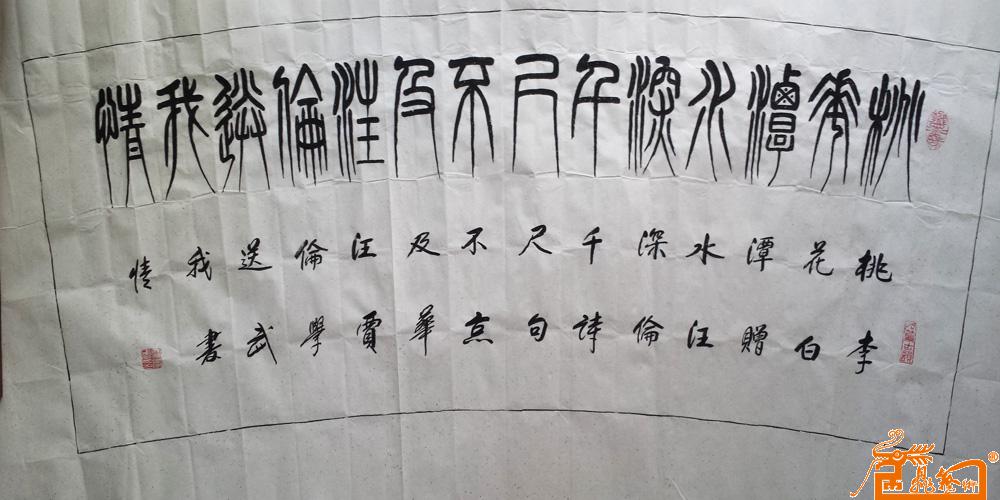 桃花潭水深千尺不及汪倫送我情
桃花潭水深千尺不及汪倫送我情
李白贈汪倫詩句京華賈學武書